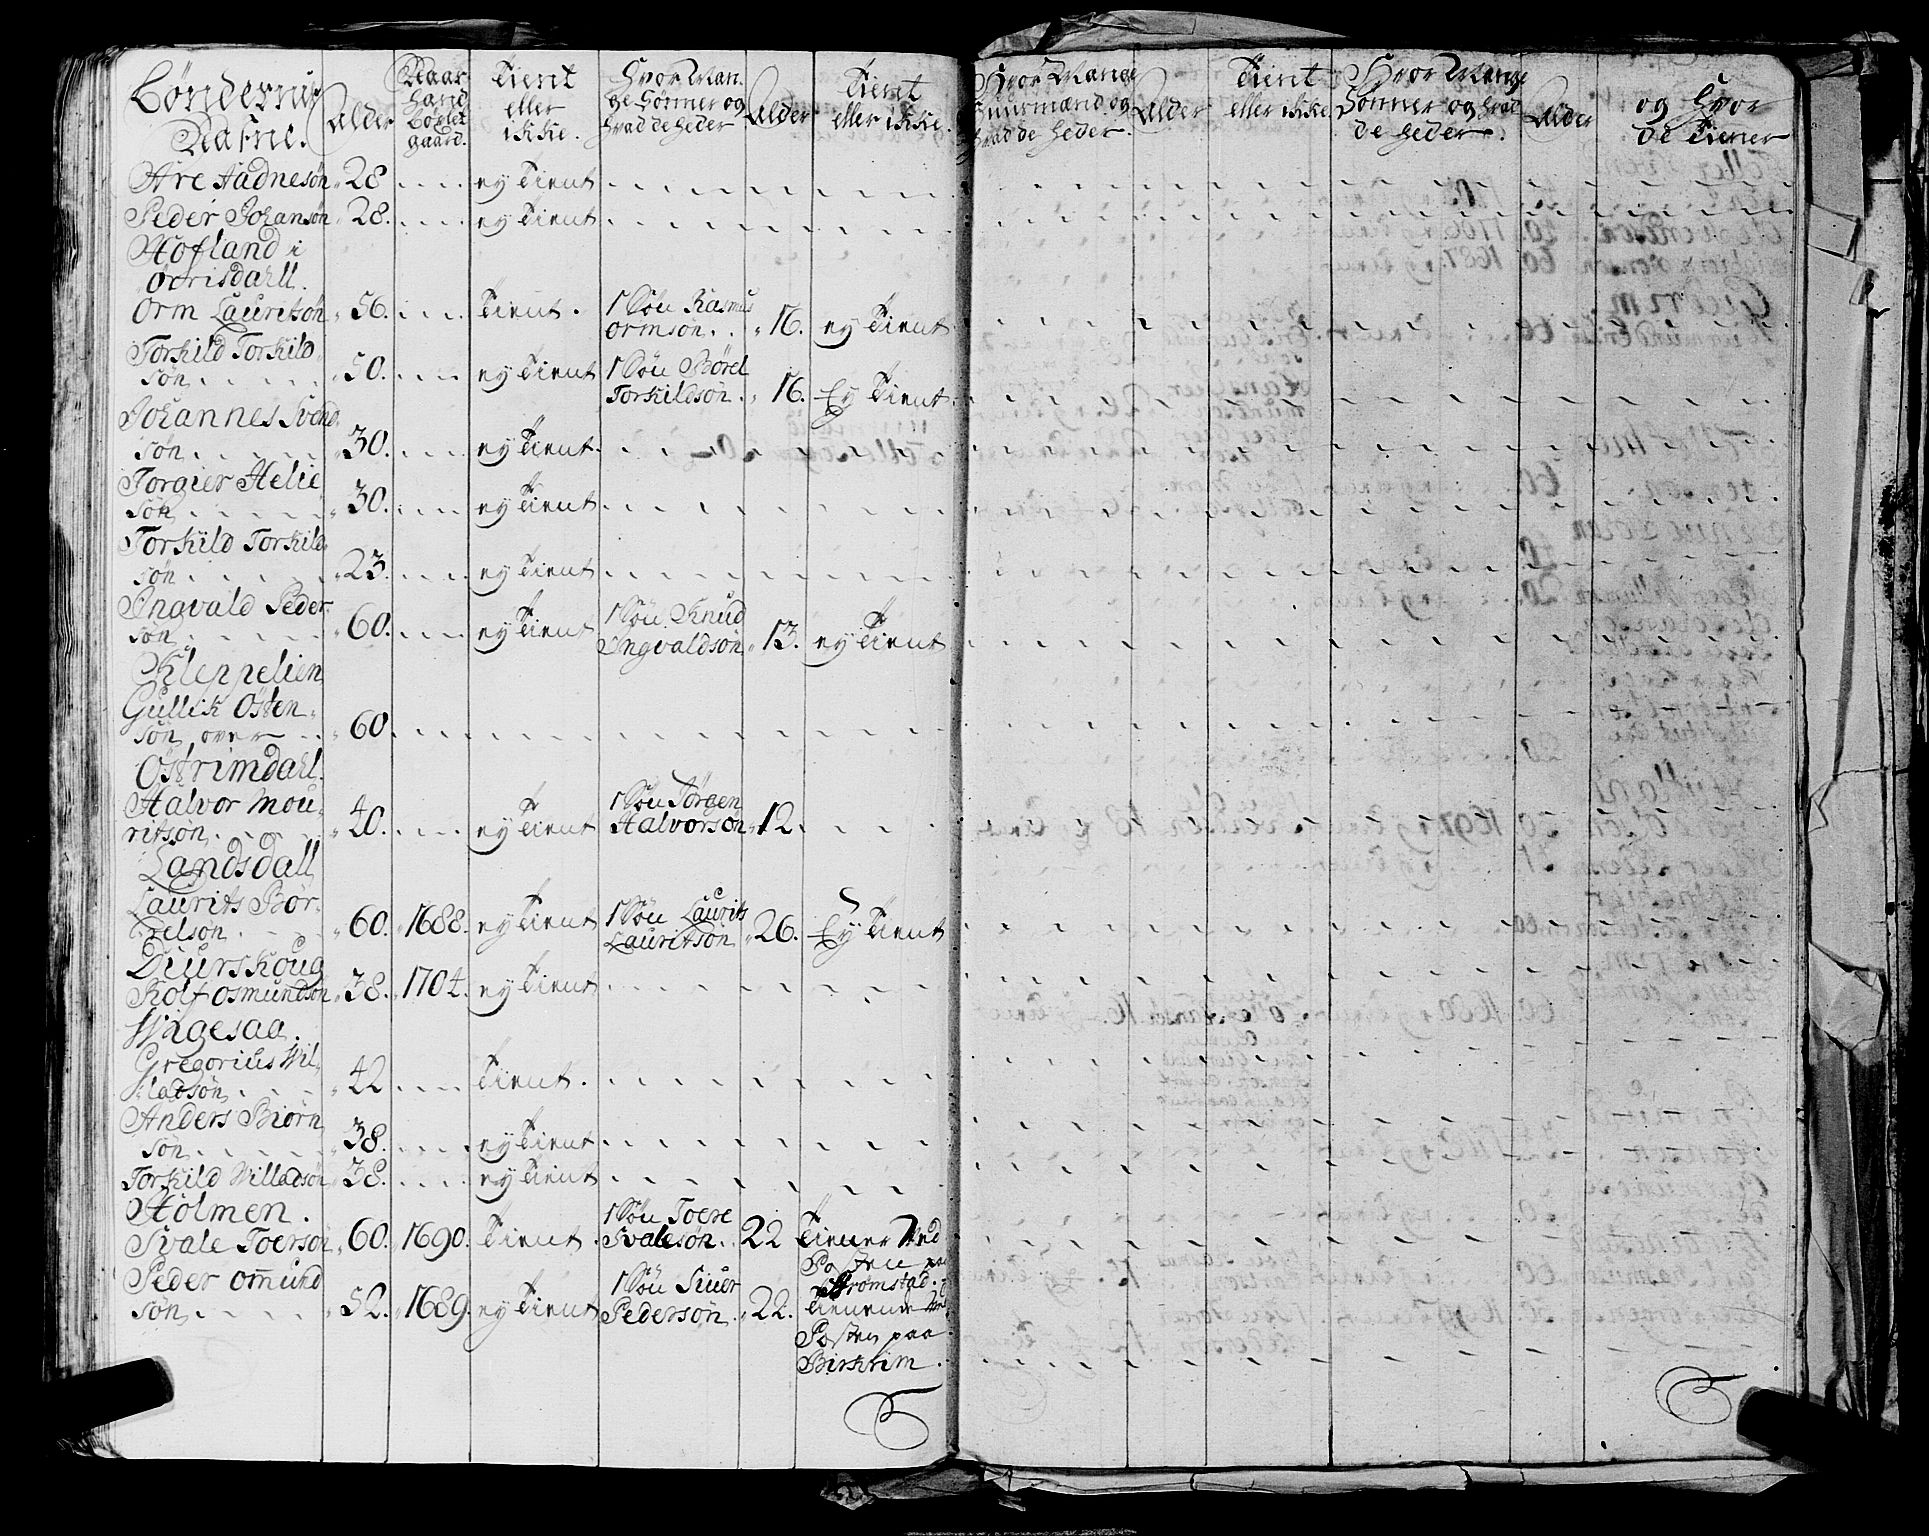 Bøndernis Nafne. Alder Naar hand bøxlet gaard. Tient eller ikke. Hvor Man ge Sønner og hvad de heder Alder Tient eller ikke. Hvor Mange Huusmænd og hvad de heder. Alder Tient eller ikke. Hvor Mange Sønner og hvad de heder. Alder og hvor de tiener
Are Aadnesøn 28 ey tient
Peder Johansøn 28. ey tient
Hofland i
Ørrisdahll.
Orm Lauritsøn 56. tient. 1 Søn Rasmus
Ormsøn. 16. ey tient
Torkild Torkild
søn 50. ey tient 1 Søn Børel
Torkildsøn. 16. Ey tient
Johannes Svend
søn 30. ey tient
Torgier Helie
søn 30. ey tient
Torkild Torkild
søn 23. ey tient
Ingvald Peder
søn 60. ey tient 1 Søn Knud
Ingvaldsøn 13. ey tient
Kleppelien
Gullik Østen
søn, over 60
Østrimdahl.
Halvor Mou
ritsøn 40. ey tient 1 Søn Jørgen
Halvorsøn 12.
Landsdall
Laurits Bør
relsøn. 60. 1688. ey tient 1 Søn Laurits
Lauritsøn 26. Ey tient
Diurskoug
Rolf Osmundsøn 38. 1704. ey tient
Wigesaa.
Gregorius Wil
ladsøn 42 tient.
Anders Biørn
søn 38. ey tient
Torkild Willadsøn 38. ey tient
Holmen.
Svale Toersøn 60. 1690. tient. 1 Søn Toere
Svalesøn. 22 tiener ved
Posten paa
Strømstad.
Peder Omund
søn 52. 1689. ey tient 1 Søn Siuer
Pedersøn 22. tienende
Posten paa
Birkrim.